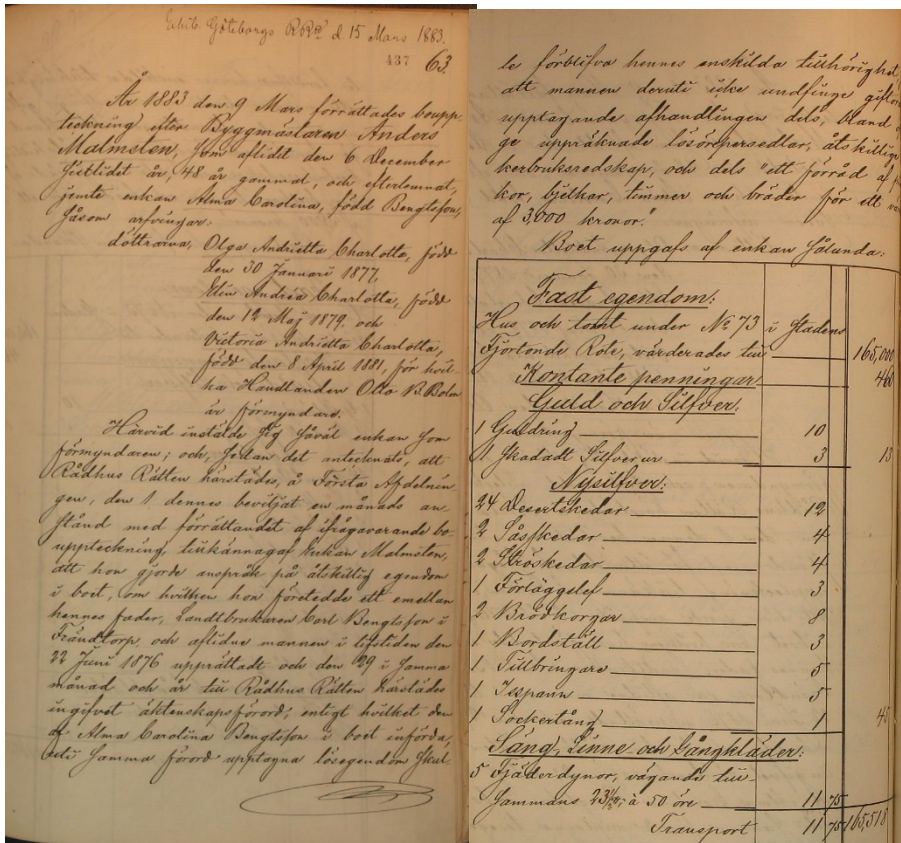 Exhib. Göteborgs RRtt d. 15 Mars 1883.
437 63.
År 1883 den 9 Mars förrättades boupp
teckning efter Byggmästaren Anders
Malmsten, som aflidit den 6 December
sistlidet år, 48 år gammal, och efterlemnat,
jemte enkan Alma Carolina, född Bengtsson,
såsom arfvingar.
döttrarna, Olga Andrietta Charlotta, född
den 30 Januari 1877,
Elin Andréa Charlotta, född
den 12 Maj 1879, och
Victoria Andrietta Charlotta,
född den 8 April 1881, för hvil-
ka Handlanden Otto B. Bolm
är förmyndare.
Härvid instälde sig såväl enkan som
förmyndaren; och, sedan det antecknats, att
Rådhus Rätten härstädes, å Första Afdelnin-
gen, den 1 dennes beviljat en månads an-
stånd med förrättandet af ifrågavarande bo-
uppteckning, tillkännagaf Enkan Malmsten,
att hon gjorde anspråk på åtskillig egendom
i boet, om hvilken hon företedde ett emellan
hennes fader, Landtbrukaren Carl Bengtsson i
Trändtorp och aflidne mannen i lifstiden den
22 Juni 1876 upprättadt och den 29 i samma
månad och år till Rådhus Rätten härstädes
ingifvet äktenskapsförord, enligt hvilket den
af Alma Carolina Bengtsson i boet införda,
uti samma förord upptagna lösegendom skul-
le förblifva hennes enskilda tillhörighet,
att mannen deruti icke undfinge giftorätt
upptagande afhandlingen dels, bland
ge uppräknade lösörepersedlar, åtskillige
kerbruksredskap, och dels "ett förråd af
kor, bjelkar, timmer och bräder för ett
af 3,000 kronor."
Boet uppgafs af enkan sålunda:
Fast egendom:
Hus och tomt under No 73 i stadens
Fjortonde Rote, värderades till 165,000
Kontante penningar 460
Guld och Silfver:
1 Guldring 10
1 skadadt Silfverur 3 13
Nysilfver:
24 Desertskedar 12
2 Såsskedar 4
2 Ströskedar 4
1 Förläggslef 3
2 Brödkorgar 8
1 Bordställ 3
1 Tillbringare 5
1 Isspann 5
1 Sockertång 1 45
Säng-, Linne och Gångkläder:
5 Fjäderdynor, vägande till-
sammans 23 1/2 ; à 50 öre 11 75
Transport 11 75 165,518